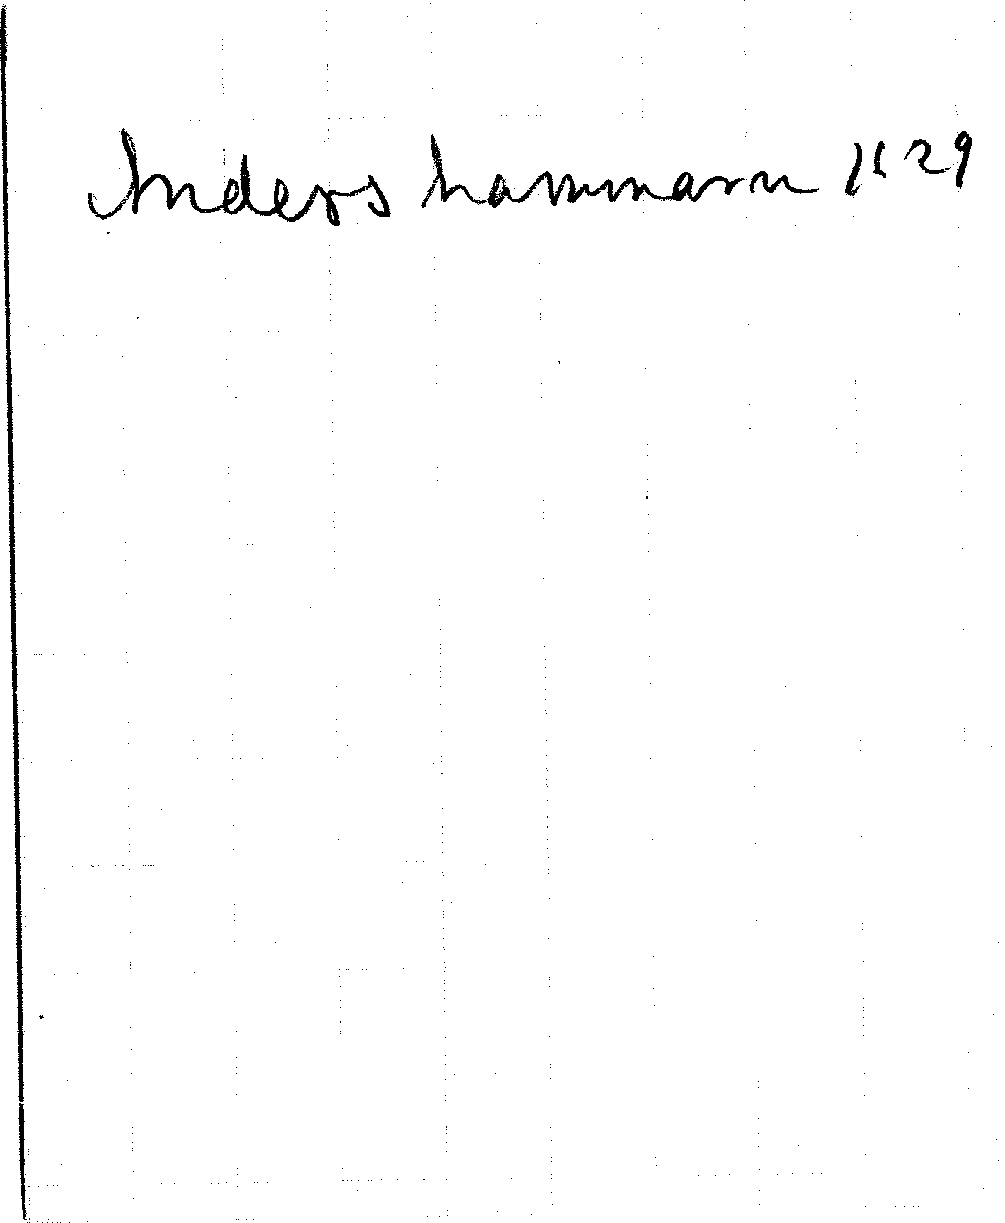 Anders hammarn 1629